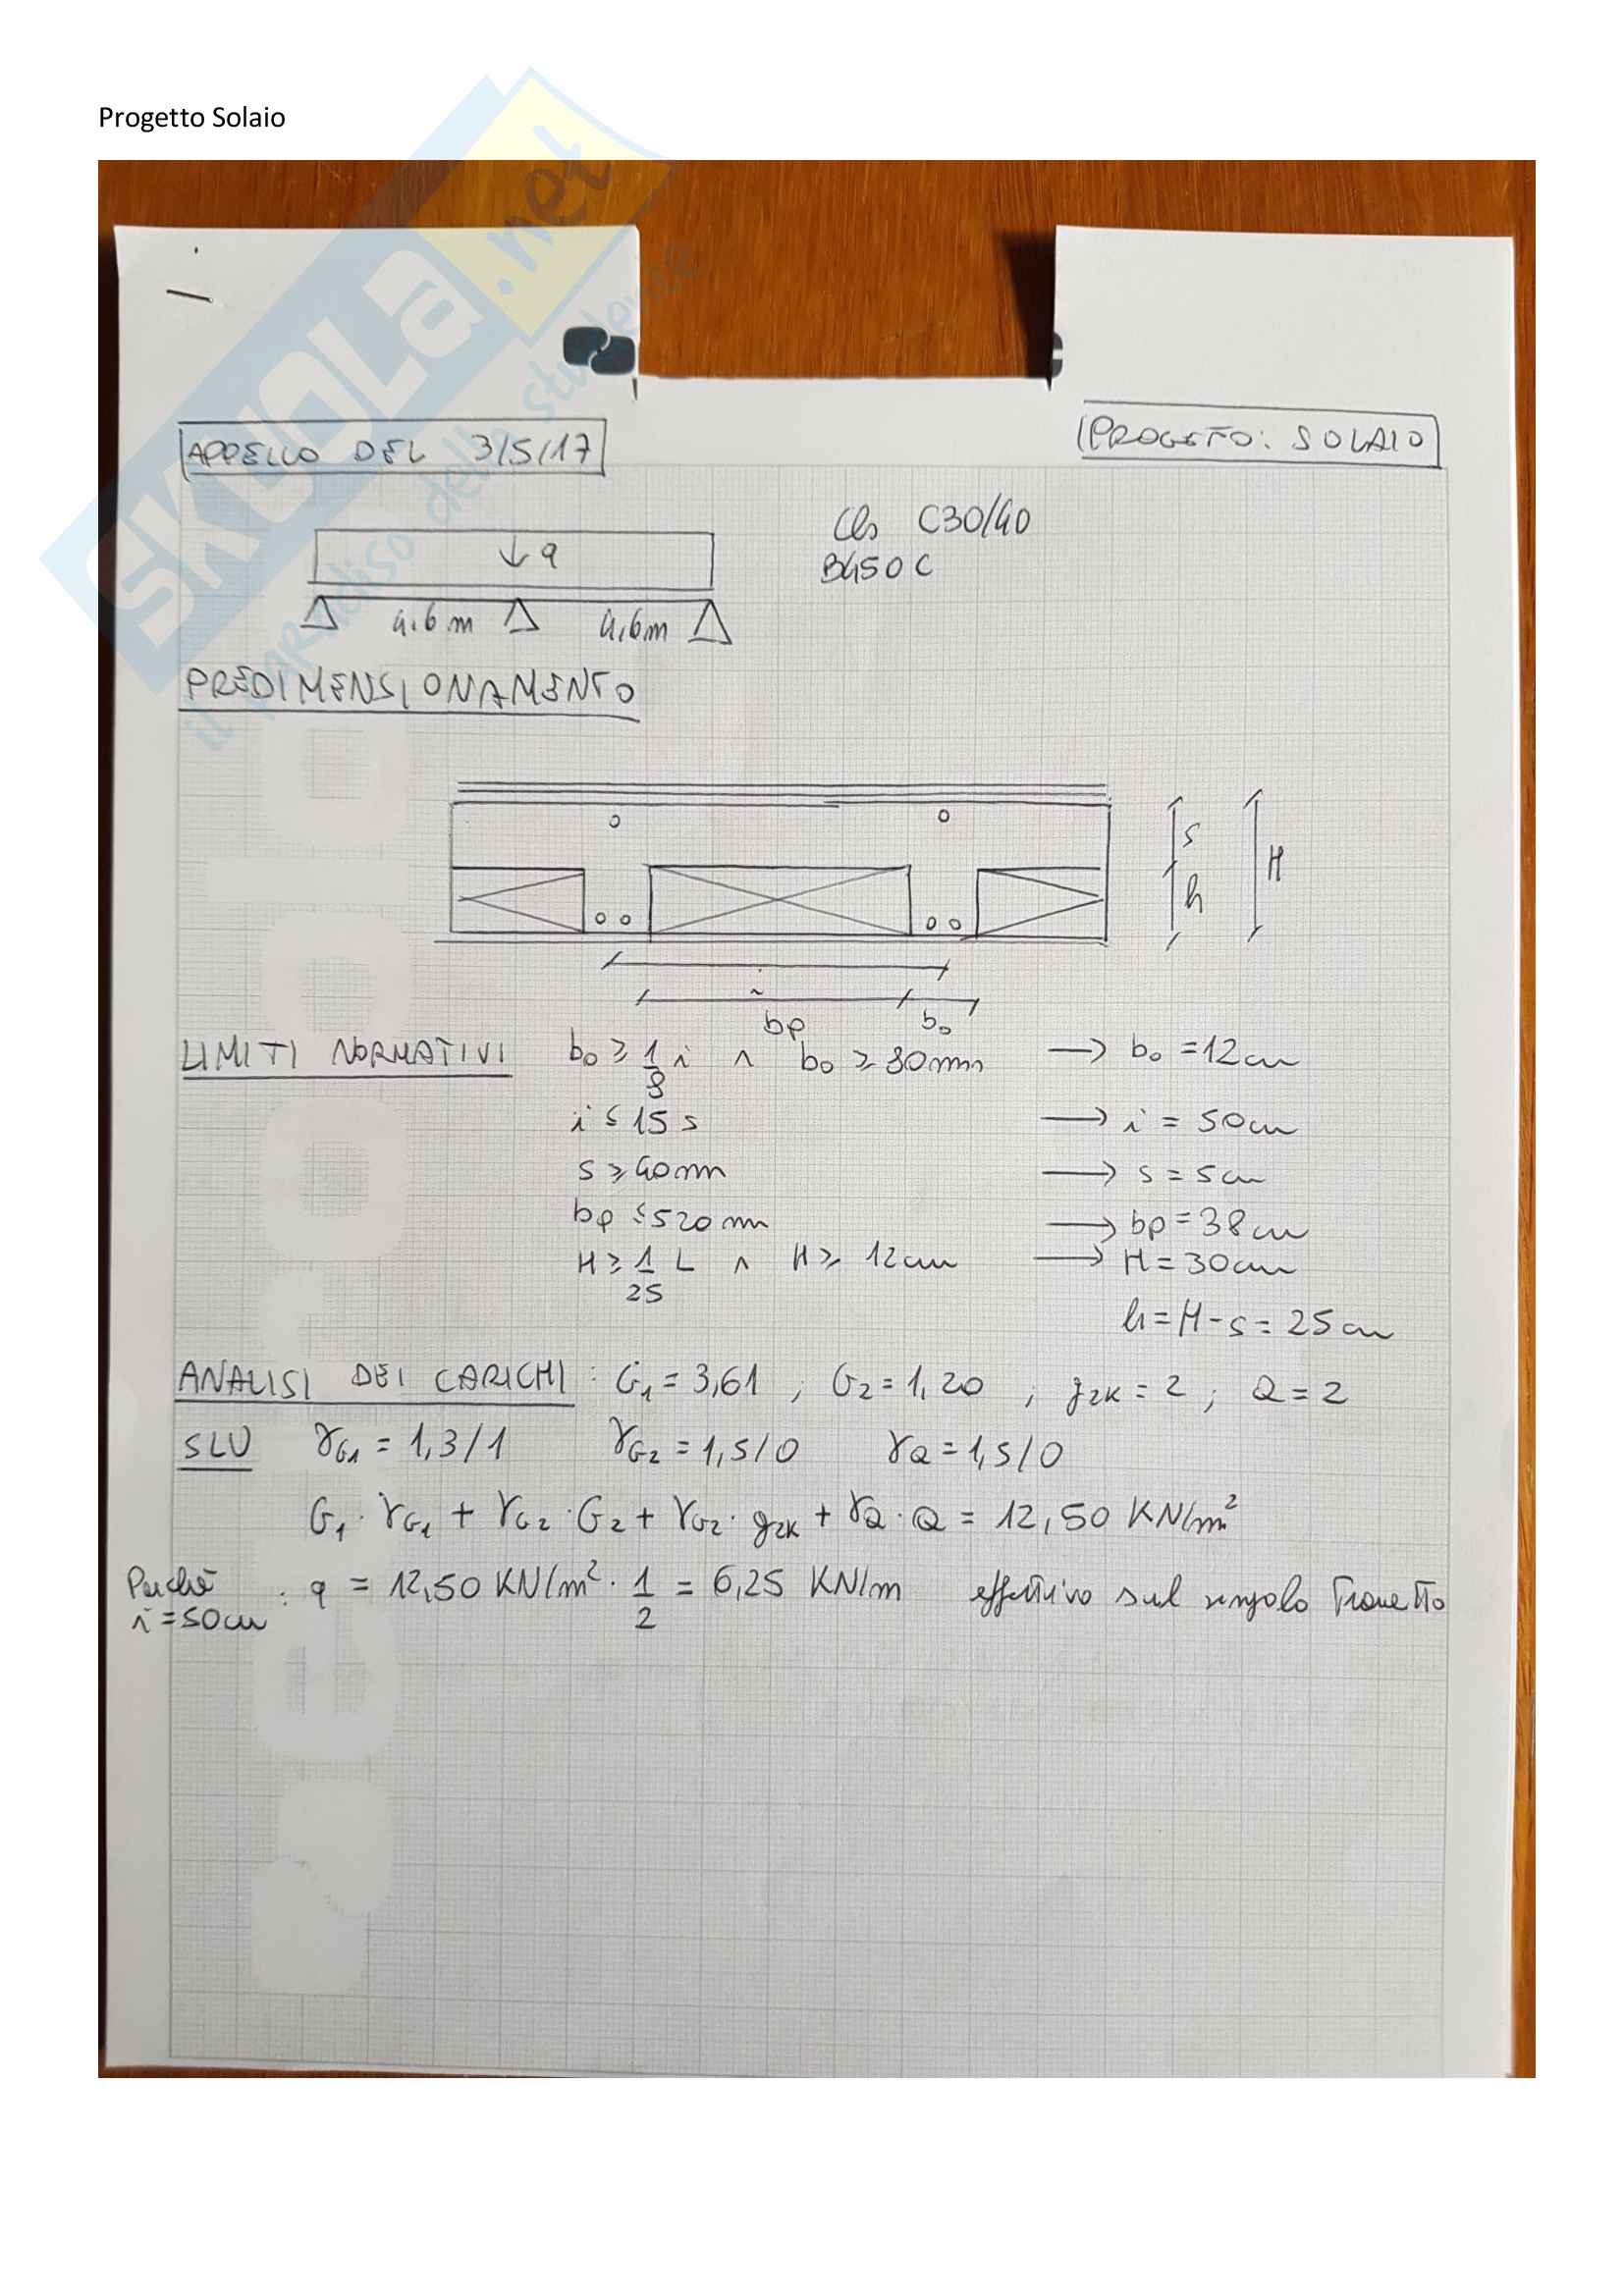 Progetto Solaio
SKUOLA.net
il paradiso dello studente
APPELLO DEL 3/5/17
PROGETTO: SOLAIO
↓ q
Cls C30/40
B450C
4.6 m 4,6m
PREDIMENSIONAMENTO
s
h
H
bp b₀
LIMITI NORMATIVI b₀ ≥ 1/8 i ∧ b₀ ≥ 80mm → b₀ = 12cm
i ≤ 15 s → i = 50cm
s ≥ 40mm → s = 5cm
bp ≤ 520mm → bp = 38cm
H ≥ 1/25 L ∧ H ≥ 12cm → H = 30cm
h = H - s = 25cm
ANALISI DEI CARICHI : G₁ = 3,61 , G₂ = 1,20 , g₂ₖ = 2 ; Q = 2
SLU γG₁ = 1,3/1 γG₂ = 1,5/0 γQ = 1,5/0
G₁ · γG₁ + γG₂ · G₂ + γG₂ · g₂ₖ + γQ · Q = 12,50 KN/m²
Perchè i = 50cm : q = 12,50 KN/m² · 1/2 = 6,25 KN/m effettivo sul singolo Travetto